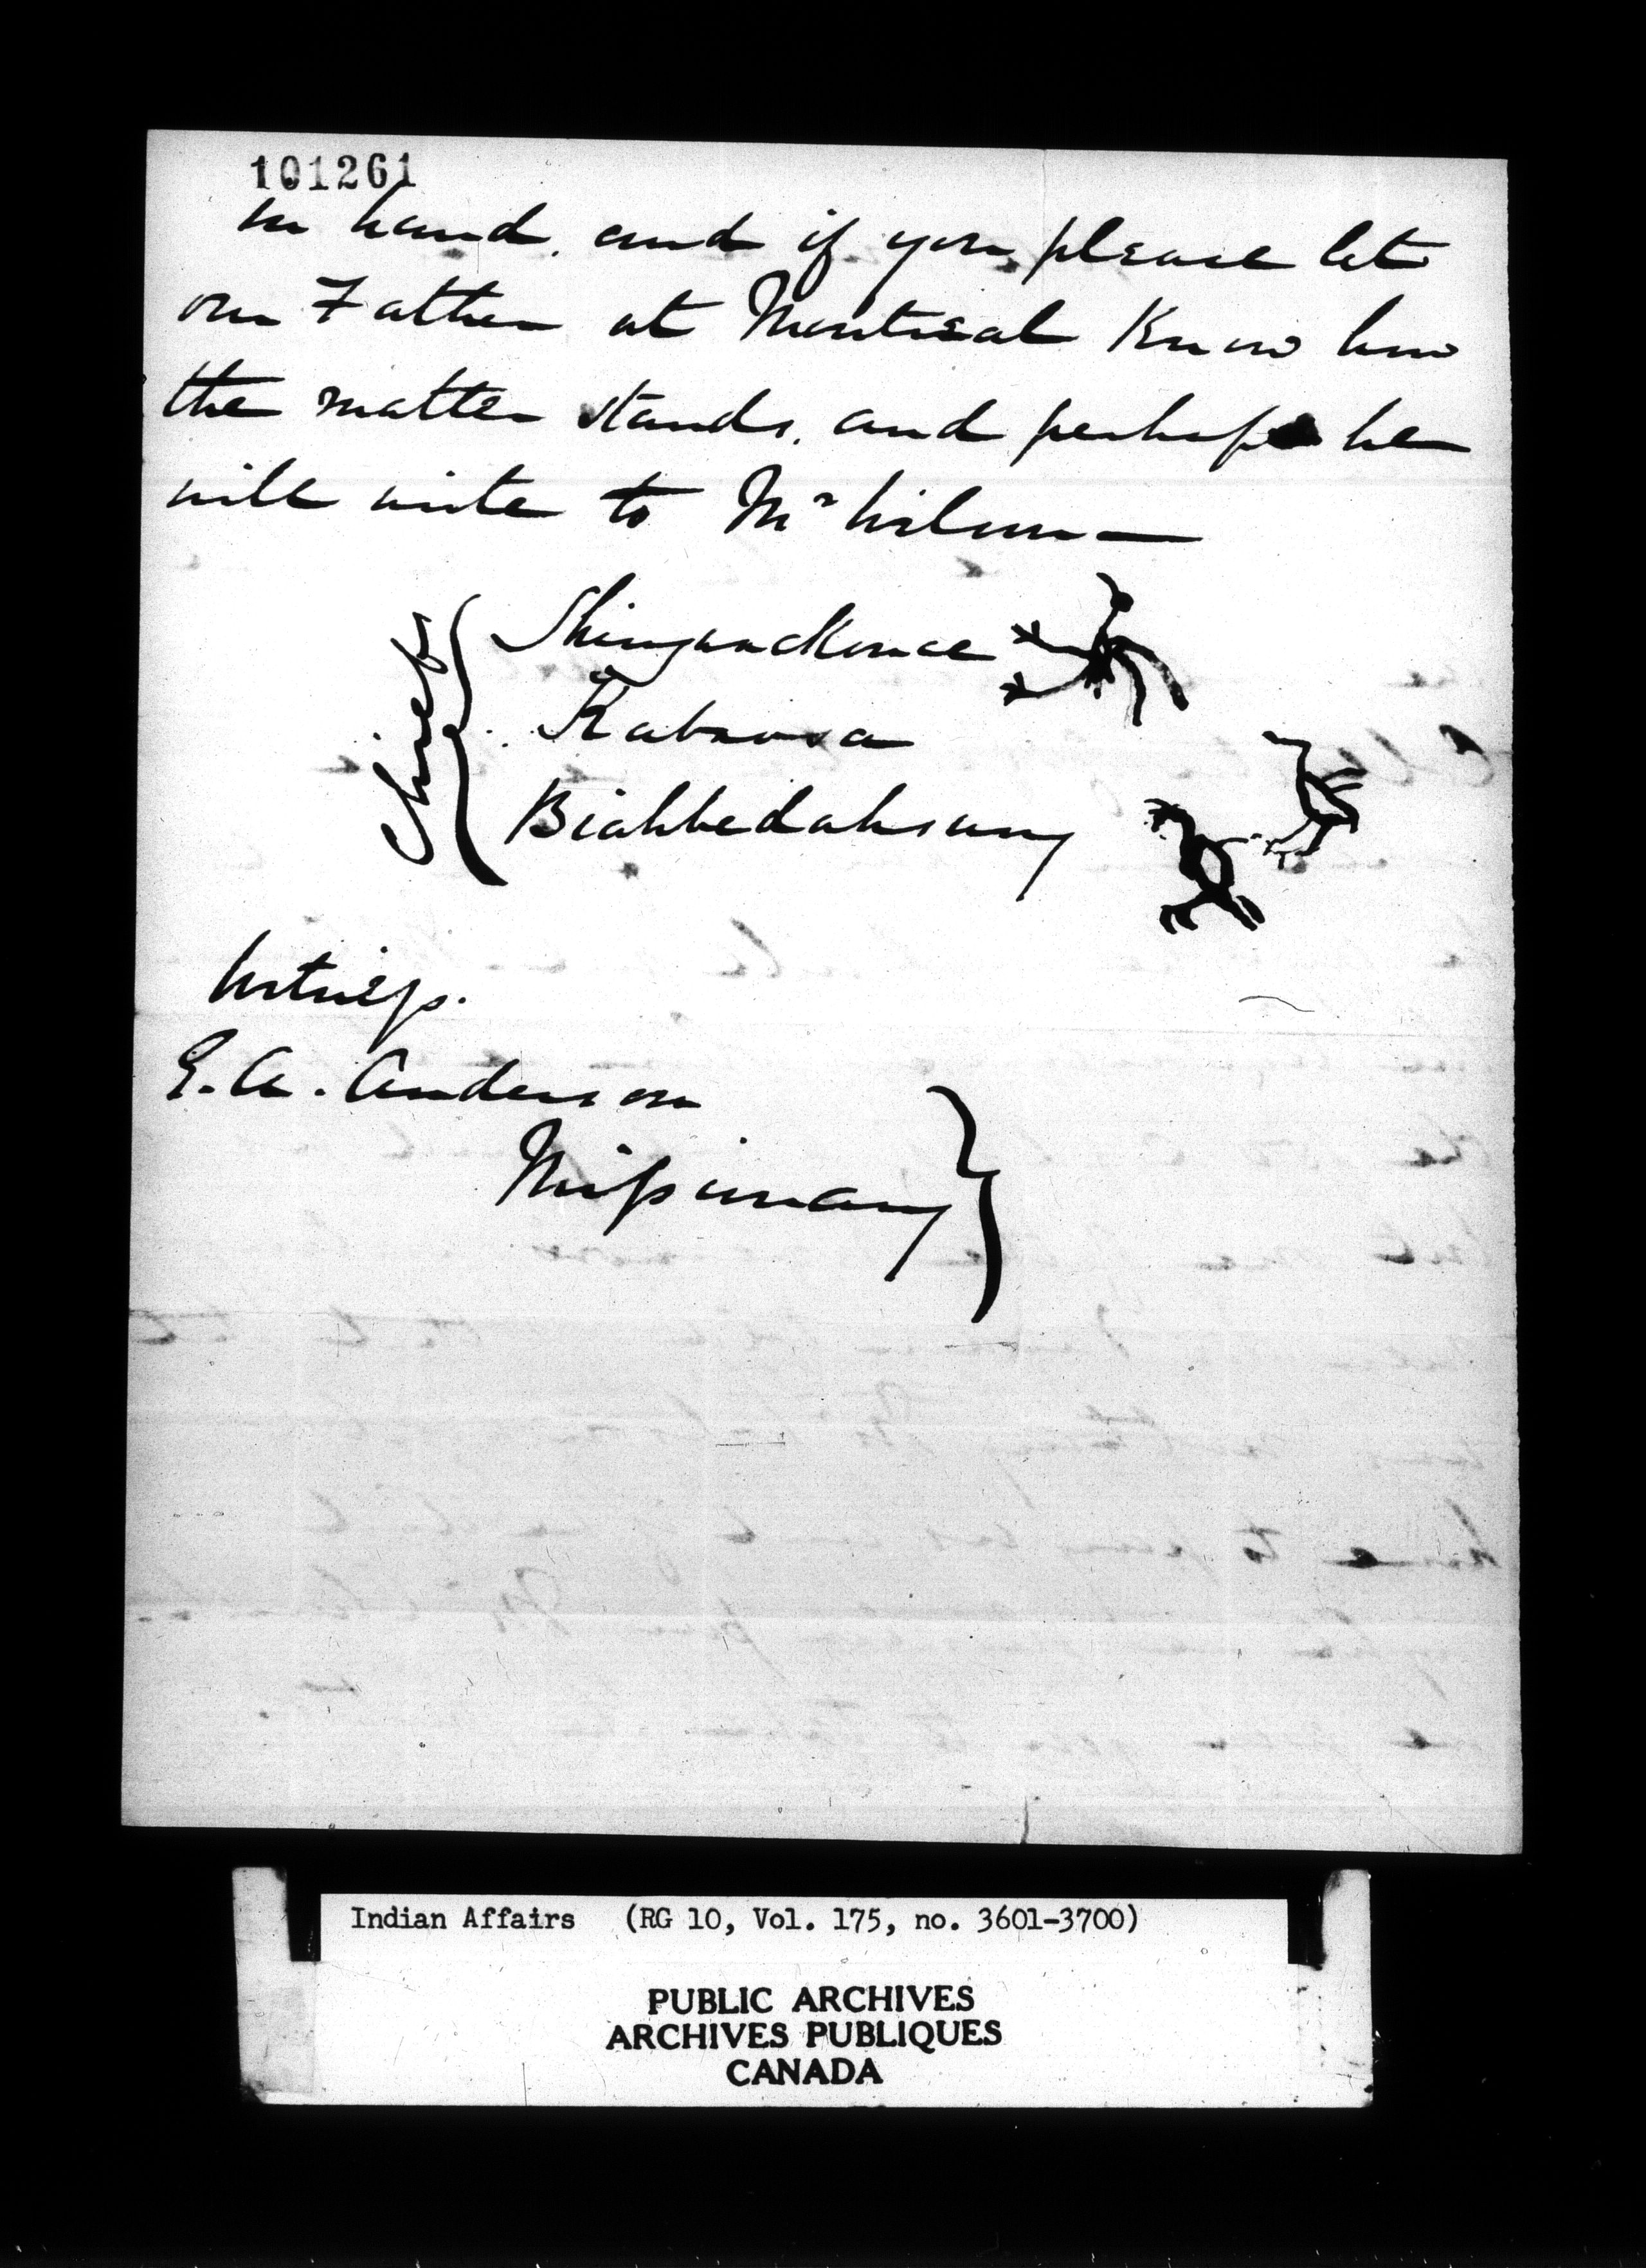 101261
in hand, and if you please let
our Father at Montreal Know how
the matter stands, and perhaps he
will write to Mr Wilson —
Chiefs
Shingwackonce
Kabaosa
Biahbedahsung
Witness.
G. A. Anderson
Missionary
Indian Affairs (RG 10, Vol. 175, no. 3601-3700)
PUBLIC ARCHIVES
ARCHIVES PUBLIQUES
CANADA